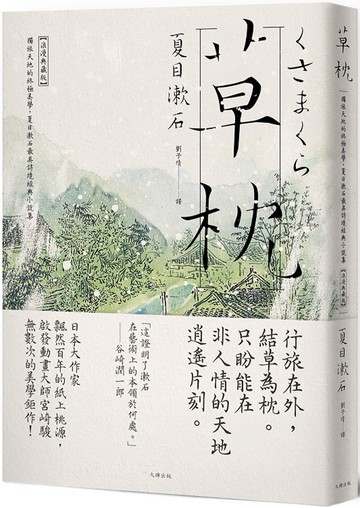 くさまくら
草枕
夏目漱石
劉子倩——譯
【浪漫典藏版】
獨旅天地的終極美學,夏目漱石最具詩境經典小說集
行旅在外,
結草為枕。
只盼能在
非人情的天地
逍遙片刻。
「這證明了漱石
在藝術上的本領於何處。」
——谷崎潤一郎
日本大作家
飄然百年的紙上桃源,
啟發動畫大師宮崎駿
無數次的美學鉅作!
草枕
獨旅天地的終極美學,夏目漱石最具詩境經典小說集
【浪漫典藏版】
夏目漱石
劉子倩——譯
大牌出版